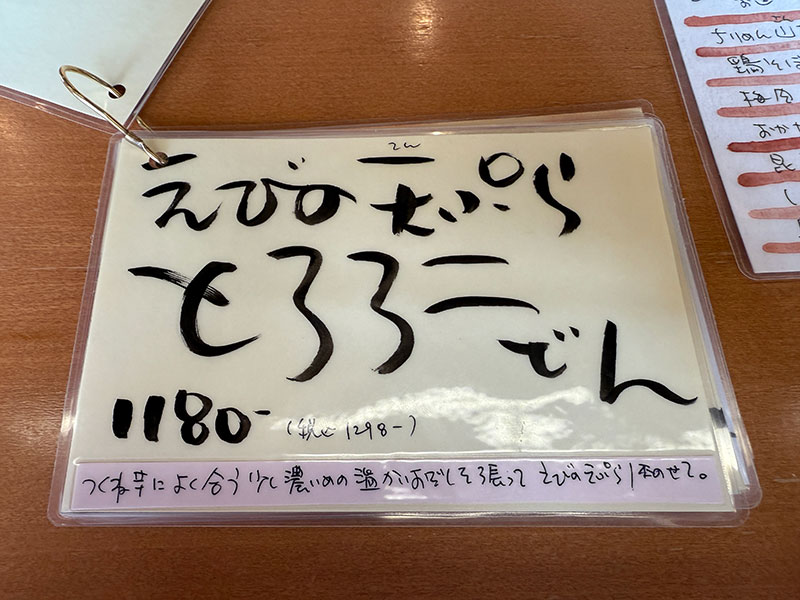 てん
えびの天ぷら
とろろうどん
1180-（税込1298-）
つくね芋によく合う少し濃いめの温かいおだしを張って えびの天ぷら1本のせて。
ちりめん山
鶏
梅肉
おかか
昆
し